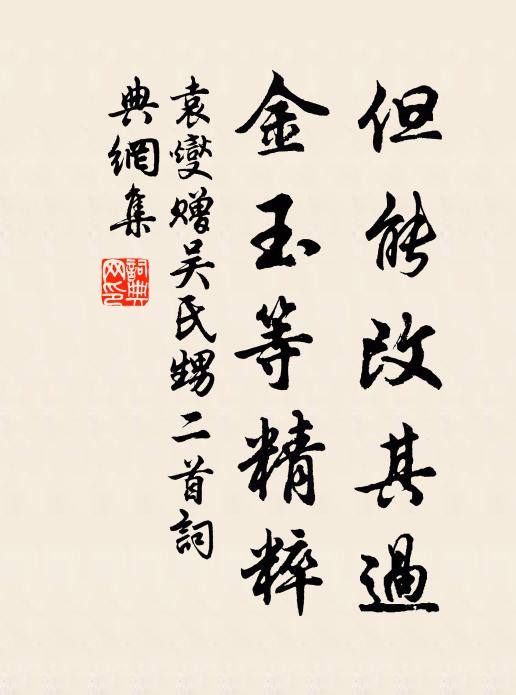 但能改其過
金玉等精粹
袁燮贈吴氏甥二首詞
典網集
詞典
网印